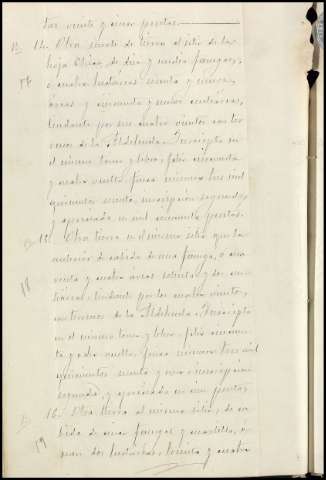 tas veinte y cinco pesetas.
14. Otra suerte de tierra al sitio de la
hoja de diez y media fanegas,
o cuatro hectáreas sesenta y cinco
áreas y cincuenta y nueve centiáreas,
lindante por sus cuatro vientos con terre
nos de la Aldehuela. Inscripta en
el mismo tomo y libro, folio cincuenta
y cuatro vuelto, finca número tres mil
quinientos sesenta, inscripción segunda,
y apreciada en mil cincuenta pesetas.
15. Otra tierra en el mismo sitio que la
anterior de cabida de una fanega, o cua
renta y cuatro áreas setenta y dos cen
tiáreas, lindante por los cuatro vientos
con terrenos de la Aldehuela. Inscripta
en el mismo tomo y libro, folio cincuen
ta y ocho vuelto, finca número tres mil
quinientos sesenta y uno, inscripción
segunda, y apreciada en cien pesetas.
16. Otra tierra al mismo sitio, de ca
bida de cinco fanegas y cuartilla, o
sean dos hectáreas, treinta y cuatro